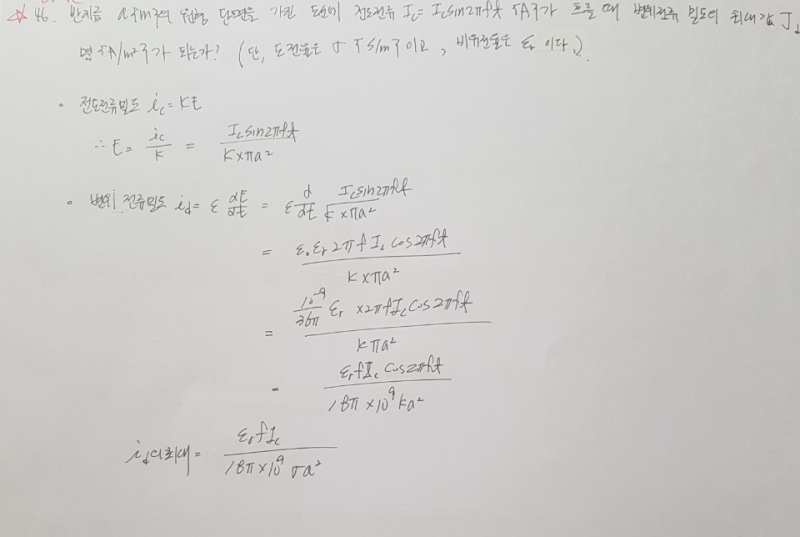 ☆ 46. 반지름 a「m」의 원형 단면을 가진 도선에 전도전류 Ic = Ic sin2πft 「A」가 흐를 때 변위전류 밀도의 최대값 Jd
몇 「A/m²」가 되는가? (단, 도전율은 σ「S/m」이고, 비유전율은 εr 이다.)
• 전도전류밀도 ic = KE
∴ E = ic/K = Ic sin2πft / K×πa²
• 변위전류밀도 id = ε dE/dt = ε d/dt Ic sin2πft / K×πa²
= ε₀εr 2πf Ic cos2πft / K×πa²
= 10⁻⁹/36π εr ×2πf Ic cos2πft / Kπa²
= εr f Ic cos2πft / 18π×10⁹ Ka²
id의최대 = εr f Ic / 18π×10⁹ σa²